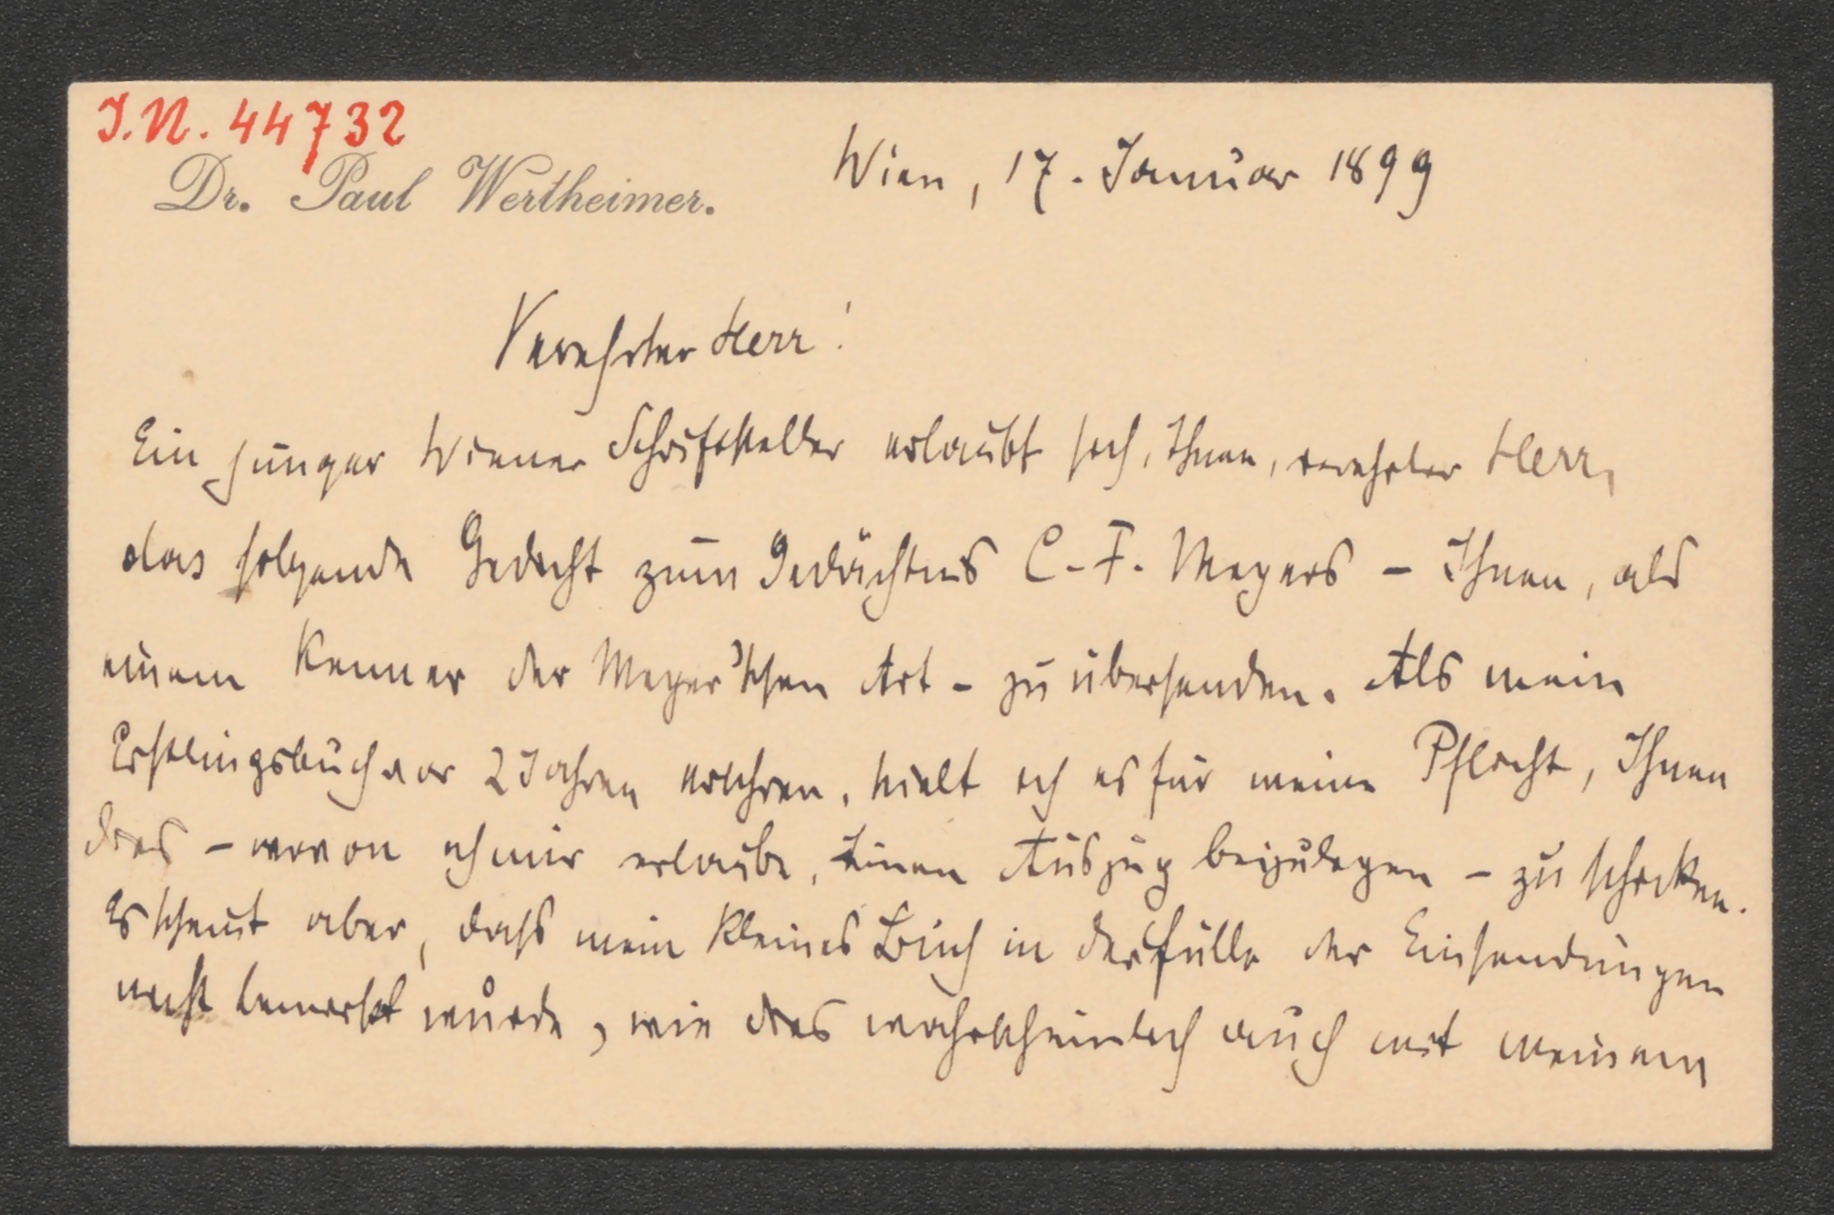 I.N. 44732
Dr. Paul Wertheimer.
Wien, 17. Januar 1899
Verehrter Herr!
Ein junger Wiener Schriftsteller erlaubt sich, Ihnen, verehrter Herr,
das folgende Gedicht zum Gedächtnis C. F. Meyers – Ihnen, als
einem Kenner der Meyer'schen Art – zu übersenden. Als mein
Erstlingsbuch vor 2 Jahren erschien, hielt ich es für meine Pflicht, Ihnen
dies – wovon ich mir erlaube, einen Auszug beizulegen – zu schicken.
Es scheint aber, dass mein kleines Buch in der Fülle der Einsendungen
nicht bemerkt wurde, wie dies wahrscheinlich auch mit meinem